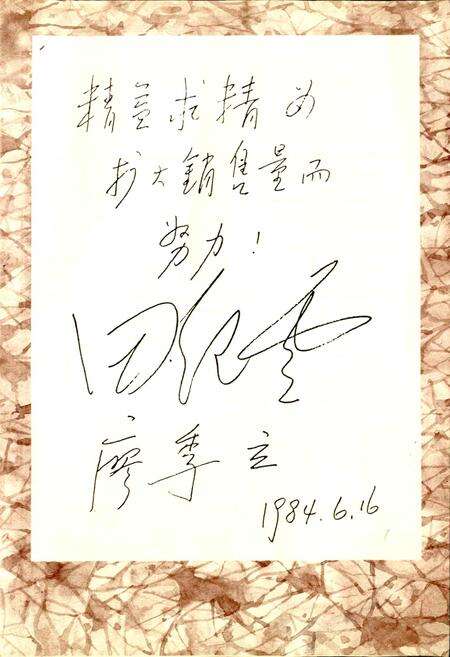 精益求精为
扩大銷售量而
努力！
田纪云
廖季立
1984.6.16